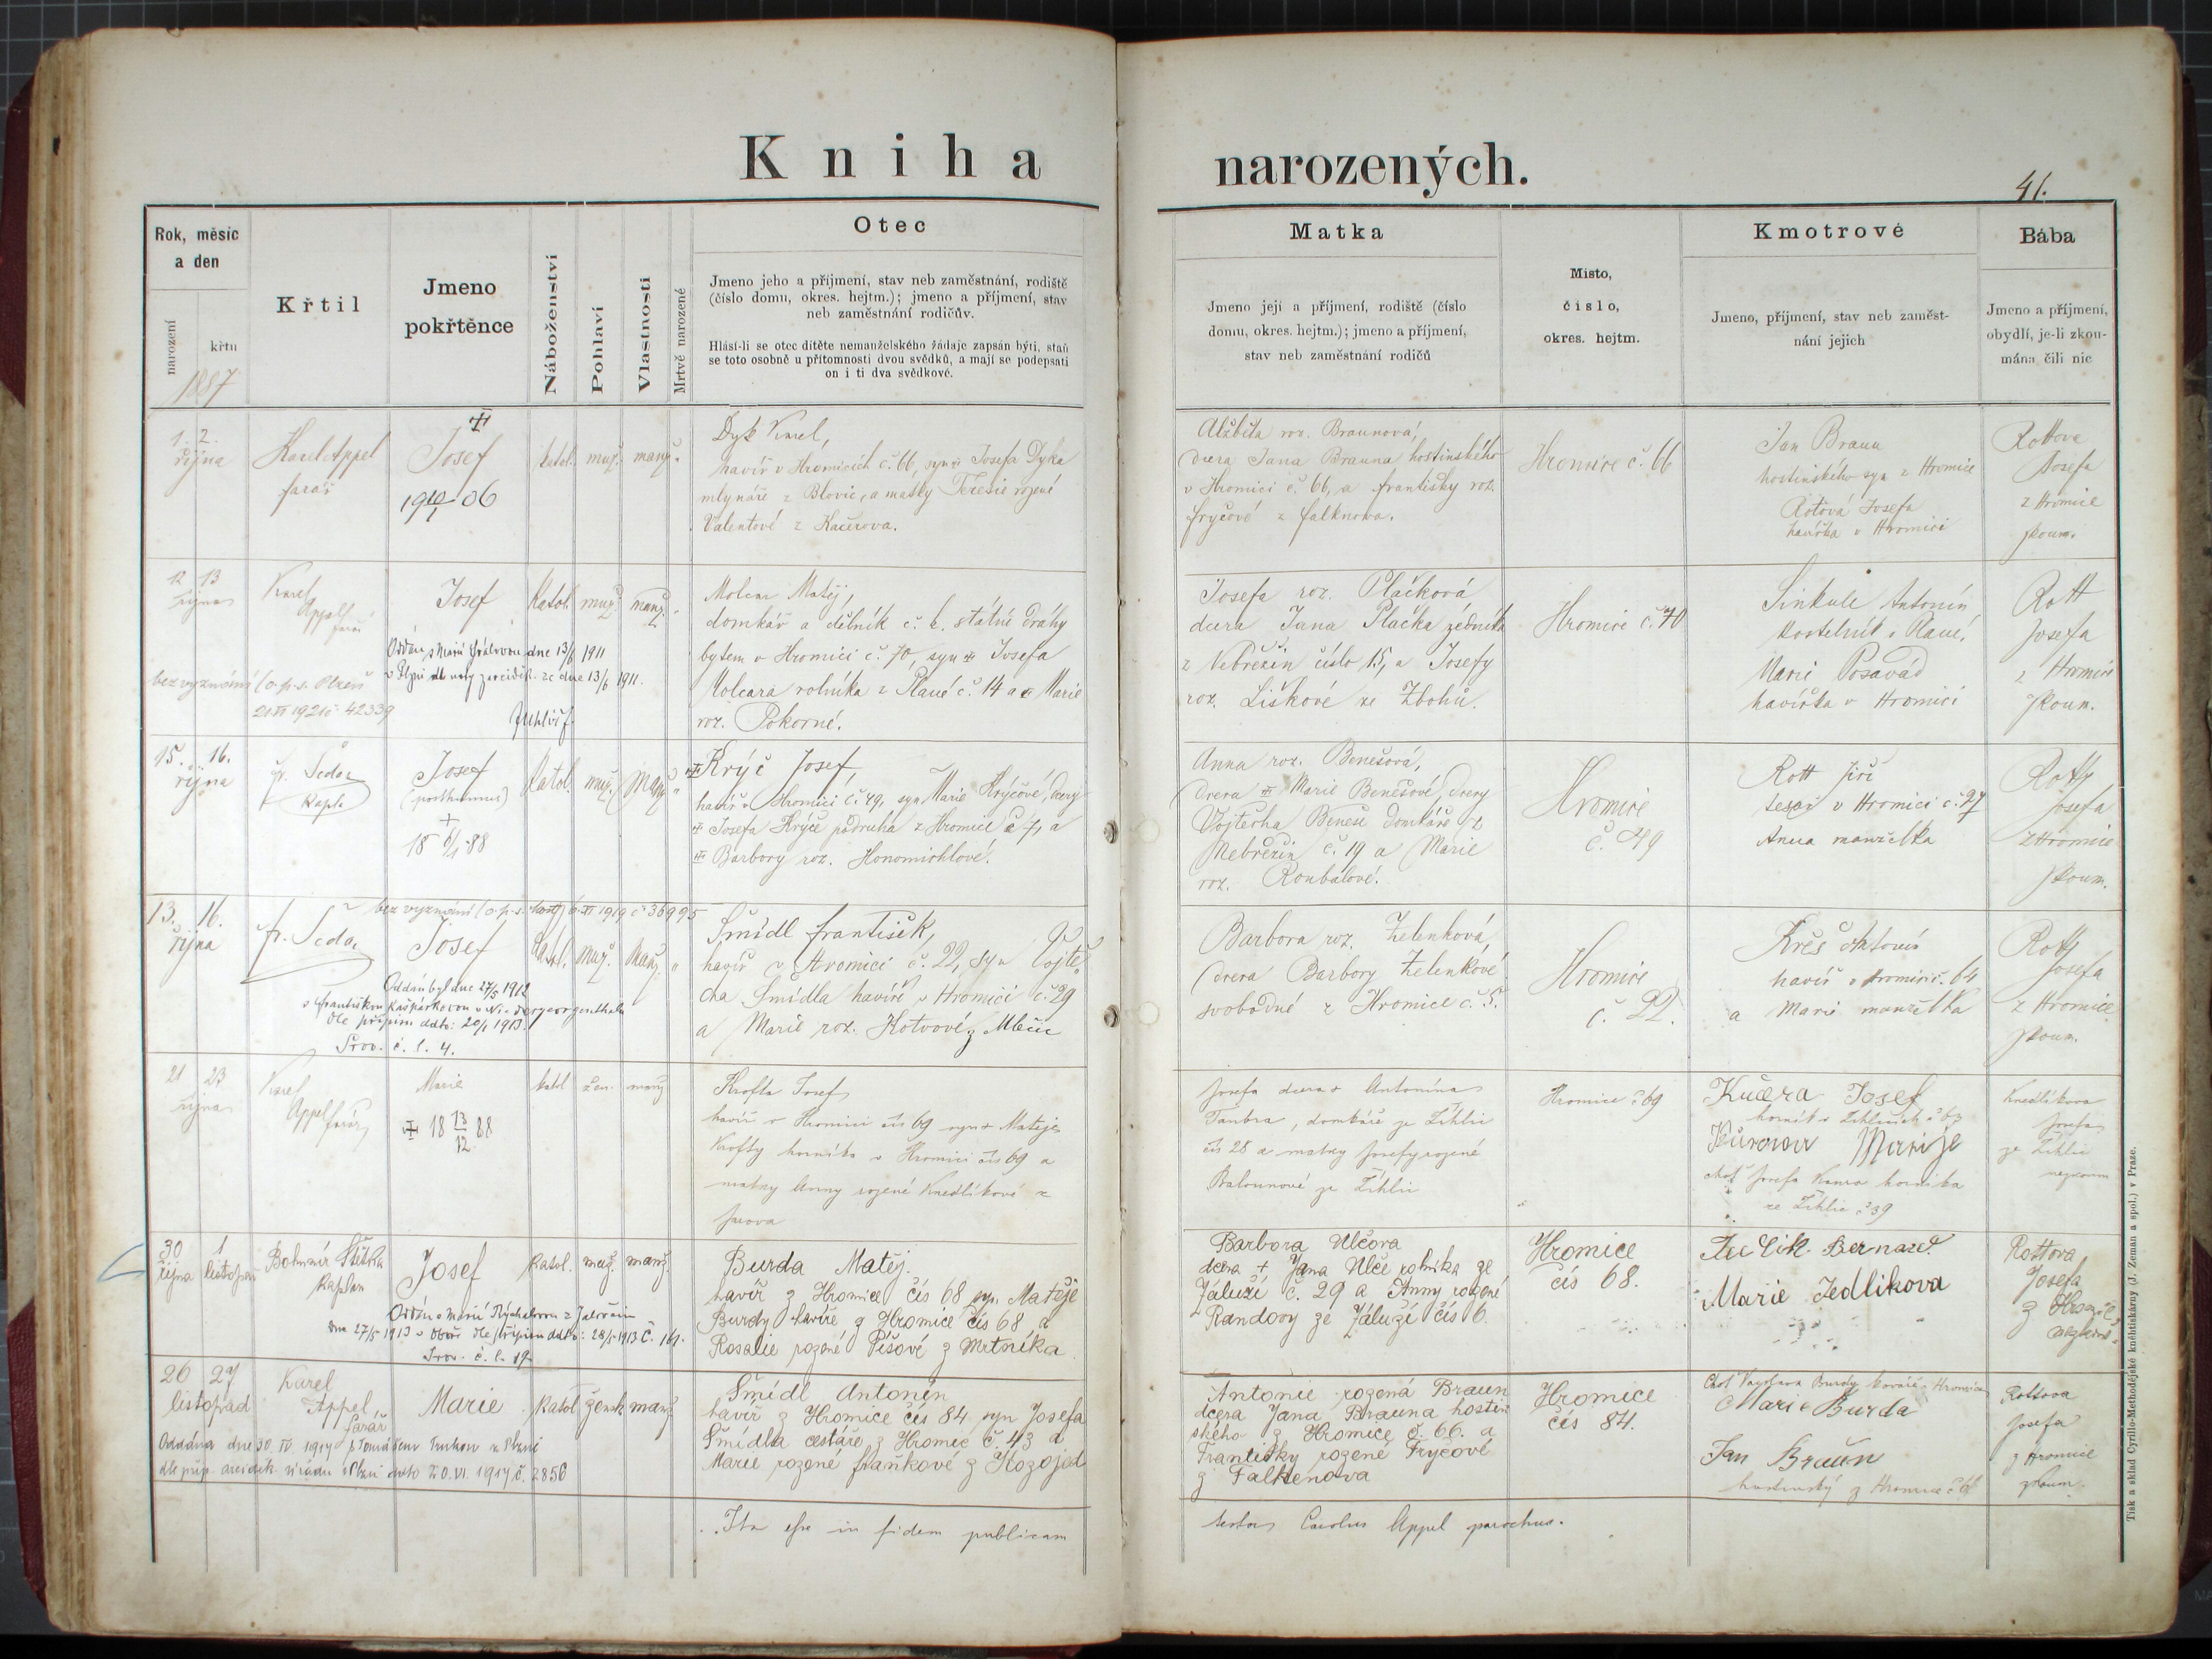 Kniha narozených.
41.
Rok, měsíc
a den
narození
křtu
1887
Křtil
Jmeno
pokřtěnce
Náboženství
Pohlaví
Vlastnosti
Mrtvě narozené
Otec
Jmeno jeho a příjmení, stav neb zaměstnání, rodiště
(číslo domu, okres. hejtm.); jmeno a příjmení, stav
neb zaměstnání rodičův.
Hlásí-li se otec dítěte nemanželského žádaje zapsán býti, staň
se toto osobně u přítomnosti dvou svědků, a mají se podepsati
on i ti dva svědkové.
Matka
Jmeno její a příjmení, rodiště (číslo
domu, okres. hejtm.); jmeno a příjmení,
stav neb zaměstnání rodičů
Místo,
číslo,
okres. hejtm.
Kmotrové
Jmeno, příjmení, stav neb zaměst-
nání jejich
Bába
Jmeno a příjmení,
obydlí, je-li zkou-
mána čili nic
1. 2.
října
Karel Appel
farář
Josef
katol. muž. manž.
Dyk Karel,
havíř v Hromicích č. 66, syn Josefa Dyka
mlynáře z Blovic, a matky Terezie rozené
Valentové z Kacerova.
Alžběta roz. Braunová,
dcera Jana Brauna hostinského
v Hromici č. 66, a Františky roz.
Fryčové z Falknova.
Hromice č. 66
Jan Braun
hostinského syn z Hromice
Rotová Josefa
havířka v Hromici
Rottova
Josefa
z Hromice
zkoum.
12 13
října
Karel
Appel
farář
Josef
Katol. muž. manž.
Oddán s Marií dne 13/6 1911
ze dne 13/6 1911.
bez vyznání (o. p. s. Plzeň
21 XI 1921 č. 42339
Molcar Matěj,
domkář a dělník c. k. státní dráhy
bytem v Hromici č. 70, syn Josefa
Molcara rolníka z Plané č. 14 a Marie
roz. Pokorné.
Josefa roz. Pláčková
dcera Jana Pláčka zedníka
z Nebřezin číslo 15, a Josefy
roz. Liškové ze Zbohů.
Hromice č. 70
Sinkule Antonín
kostelník v Plané,
Marie Posavád
havířka v Hromici
Rott
Josefa
z Hromice
zkoum.
15. 16.
října
fr. Šeda
Kapla
Josef
(posthumus)
18 6/1 88
Katol. muž. Manž.
Krýč Josef,
havíř v Hromici č. 49, syn Marie Krýčové, dcery
Josefa Krýče podruha z Hromice č. 7, a
Barbory roz. Honomichlové.
Anna roz. Benešová,
dcera Marie Benešové, dcery
Vojtěcha Beneše domkáře z
Nebřezin č. 19 a Marie
roz. Roubalové.
Hromice
č. 49
Rott Jiří
tesař v Hromici č. 27
Anna manželka
Rott
Josefa
z Hromice
zkoum.
13. 16.
října
fr. Šeda
bez vyznání (o. p. s. 6. XI 1919 č. 36995
Josef
Katol. muž. Manž.
Oddán byl dne 27/5 1912
s Františkou Kašpárkovou v
dle přípisu ddto: 20/1 1913.
Srov. č. l. 4.
Šmídl František,
havíř v Hromici č. 22, syn Vojtě-
cha Šmídla havíře v Hromici č. 29
a Marie roz. Kotvové z Mlečic
Barbora roz. Zelenková,
dcera Barbory Zelenkové
svobodné z Hromice č. 5.
Hromice
č. 22.
Kreš Antonín
havíř v Hromici č. 64
a Marie manželka
Rott
Josefa
z Hromice
zkoum.
21 23
října
Karel
Appel farář
Marie
18 13/12 88
katol žen. manž
Krofta Josef
havíř v Hromici čís 69 syn Matěje
Krofty horníka v Hromici čís 69 a
matky Anny rozené Knedlíkové z
Josefa dcera Antonína
Taubra, domkáře ze Žihlic
čís 28 a matky Josefy rozené
Balounové ze Žihlic
Hromice č 69
Kučera Josef
horník v Žihlicích č 63
Marije
choť Josefa horníka
ze Žihlic č 39
Knedlíkova
Josefa
ze Žihlic
nezkoum
30 1
října listopad
Bohumír Štětka
Kaplan
Josef
Katol. muž. manž.
dne 27/5 1913 v Oboře dle přípisu ddto: 28/5 1913 č. 161.
Srov. č. l. 19
Burda Matěj.
havíř z Hromice čís 68 syn. Matěje
Burdy havíře z Hromice čís 68 a
Rosalie rozené Píšové z Mrtníka
Barbora Ulčova
dcera + Jana Ulče rolníka ze
Záluží č. 29 a Anny rozené
Randovy ze Záluží čís 6.
Hromice
čís 68.
Jedlik Bernard.
Marie Jedlikova
Rottova
Josefa
z Hromice
26 27
listopad
Karel
Appel,
farář
Marie
Katol žensk manž
Oddána dne 30. IV. 1917 s Tomášem v Plzni
20. VI. 1917, č. 2856
Šmídl Antonín
havíř z Hromice čís 84 syn Josefa
Šmídla cestáře z Hromic č. 43 a
Marie rozené Fraňkové z Kozojed
Antonie rozená Braun
dcera Jana Brauna hostin
ského z Hromice č. 66. a
Františky rozené Fryčové
z Falkenova
Hromice
čís 84.
Choť Burdy kováře z Hromice
Marie Burda
Jan Braun
hostinský z Hromice č 66
Rottova
Josefa
z Hromice
zkoum.
Ita esse in fidem publicam
testor Carolus Appel parochus.
Tisk a sklad Cyrillo-Methodějské knihtiskárny (J. Zeman a spol.) v Praze.